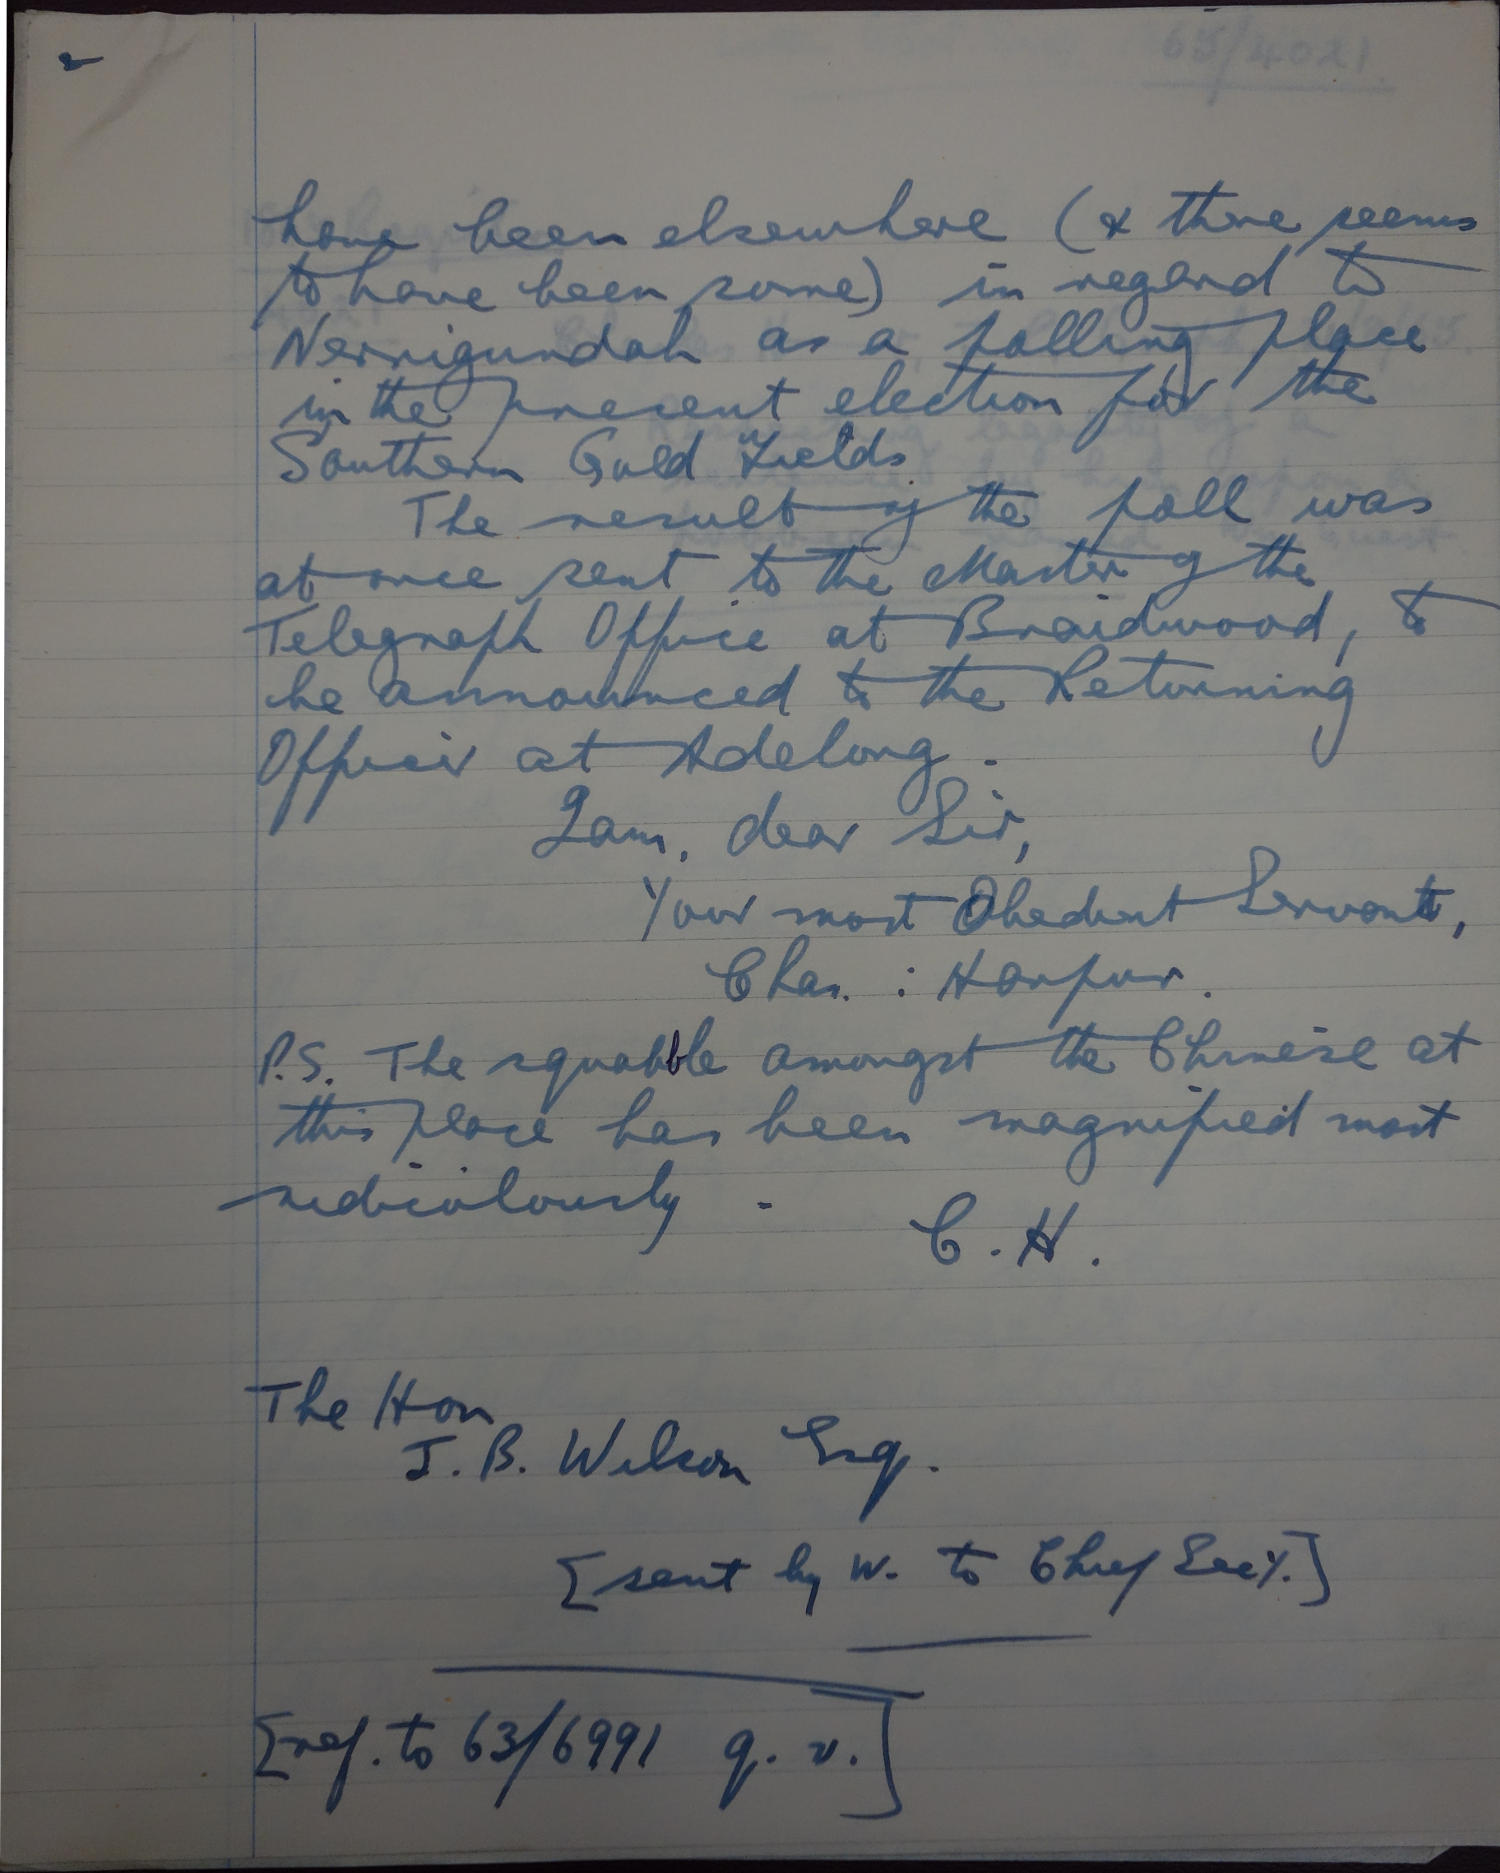 2
have been elsewhere (& there seems
to have been some) in regard to
Nerrigundah as a polling place
in the present election for the
Southern Gold Fields
The result of the poll was
at once sent to the Master of the
Telegraph Office at Braidwood, to
be announced to the Returning
Officer at Adelong.
I am, dear Sir,
Your most Obedient Servant,
Chas. : Harpur.
P.S. The squabble amongst the Chinese at
this place has been magnified most
ridiculously -
C. H.
The Hon
J. B. Wilson Esq.
[sent by W. to Chief Secy.]
[ref. to 63/6991 q. v.]